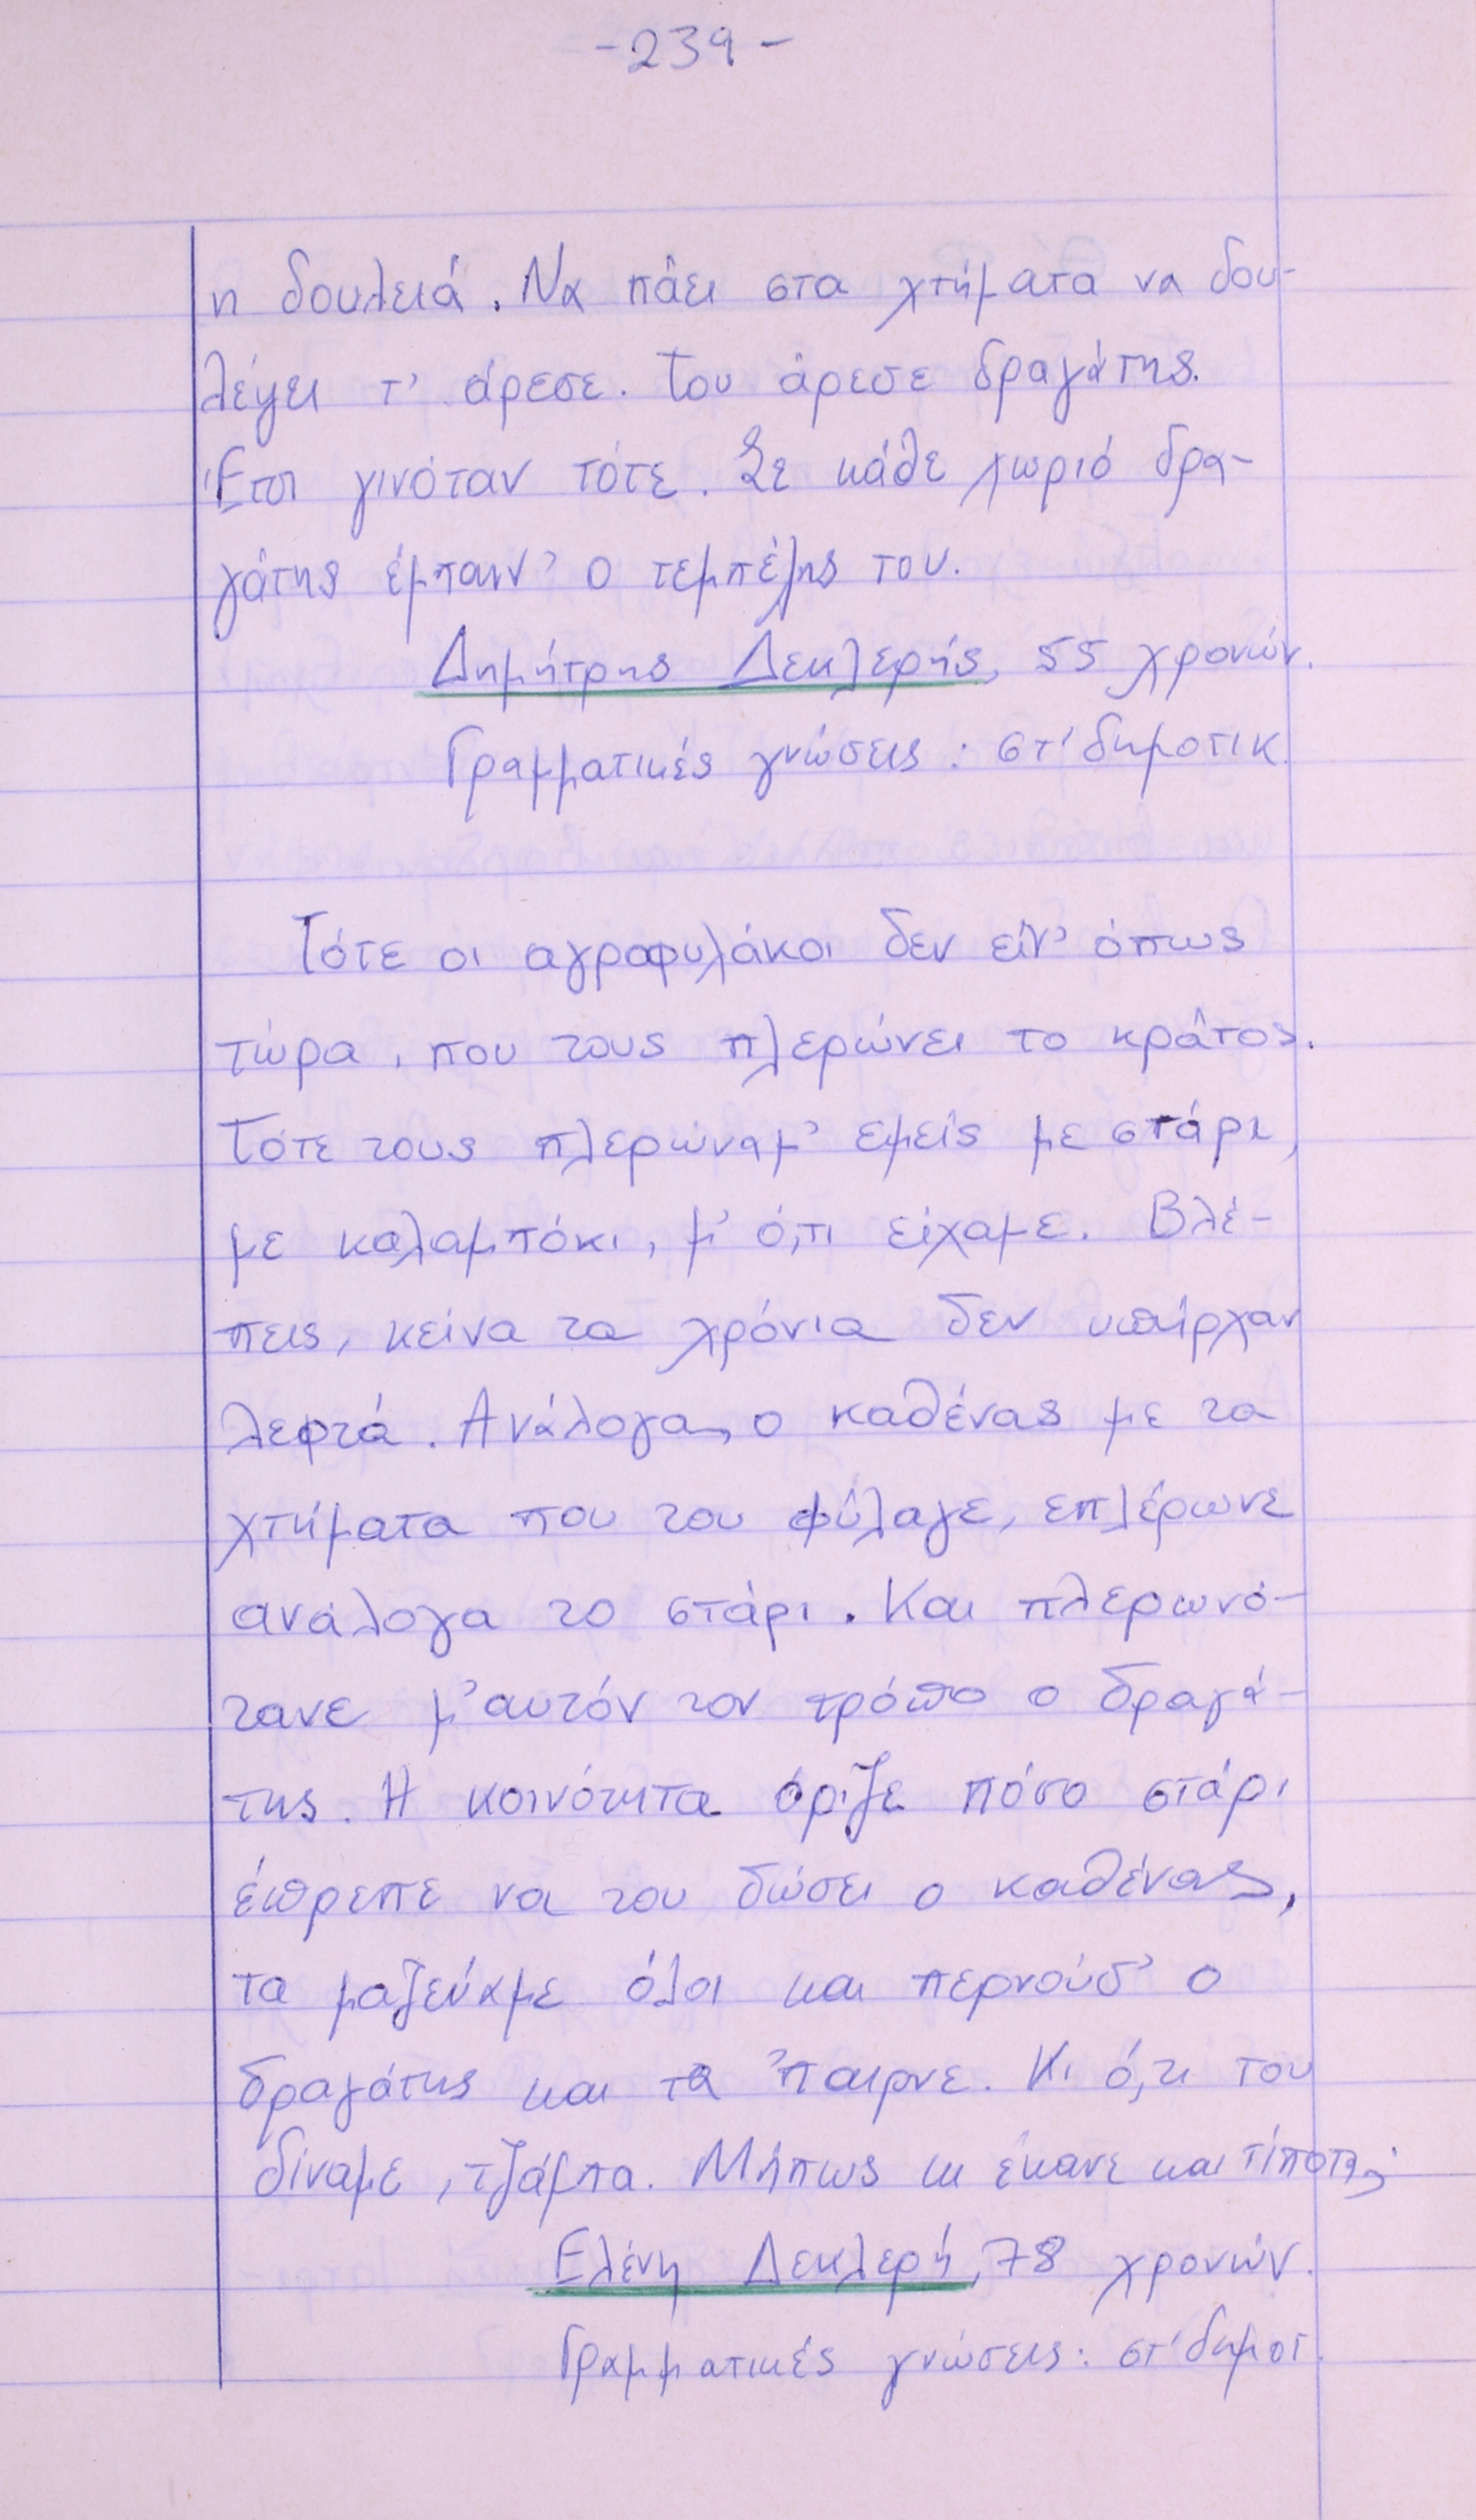 -239-
η δουλειά. Να πάει στα χτήματα να δου-
λέψει τ' άρεσε. Του άρεσε δραγάτης.
Έτσι γινόταν τότε. Σε κάθε χωριό δρα-
γάτης έμπαιν' ο τεμπέλης του.
Δημήτρης Δεκλερής, 55 χρονών.
Γραμματικές γνώσεις: στ' δημοτικ.
Τότε οι αγροφυλάκοι δεν είν' όπως
τώρα, που τους πλερώνει το κράτος.
Τότε τους πλερώναμ' εμείς με στάρι,
με καλαμπόκι, μ' ό,τι είχαμε. Βλέ-
πεις, κείνα τα χρόνια δεν υπήρχαν
λεφτά. Ανάλογα, ο καθένας με τα
χτήματα που του φύλαγε, επλέρωνε
ανάλογα το στάρι. Και πλερωνό-
τανε μ' αυτόν τον τρόπο ο δραγά-
της. Η κοινότητα όριζε πόσο στάρι
έπρεπε να του δώσει ο καθένας,
τα μαζεύαμε όλοι και περνούσ' ο
δραγάτης και τα 'παιρνε. Κι ό,τι του
δίναμε, τζάμπα. Μήπως κι έκανε και τίποτα;
Ελένη Δεκλερή, 78 χρονών.
Γραμματικές γνώσεις: στ' δημοτ.